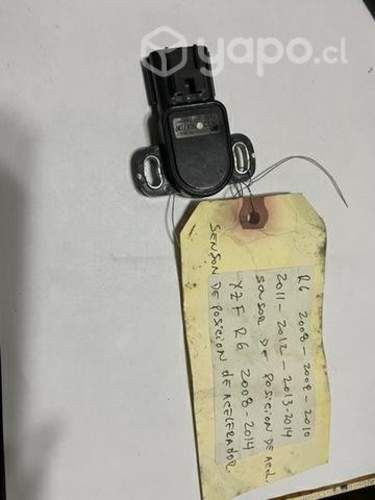 yapo.cl
R6 2008-2009-2010
2011-2012-2013-2014
SENSOR DE POSICION DE ACEL.
YZF R6 2008-2014
SENSOR DE POSICION DE ACELERADOR